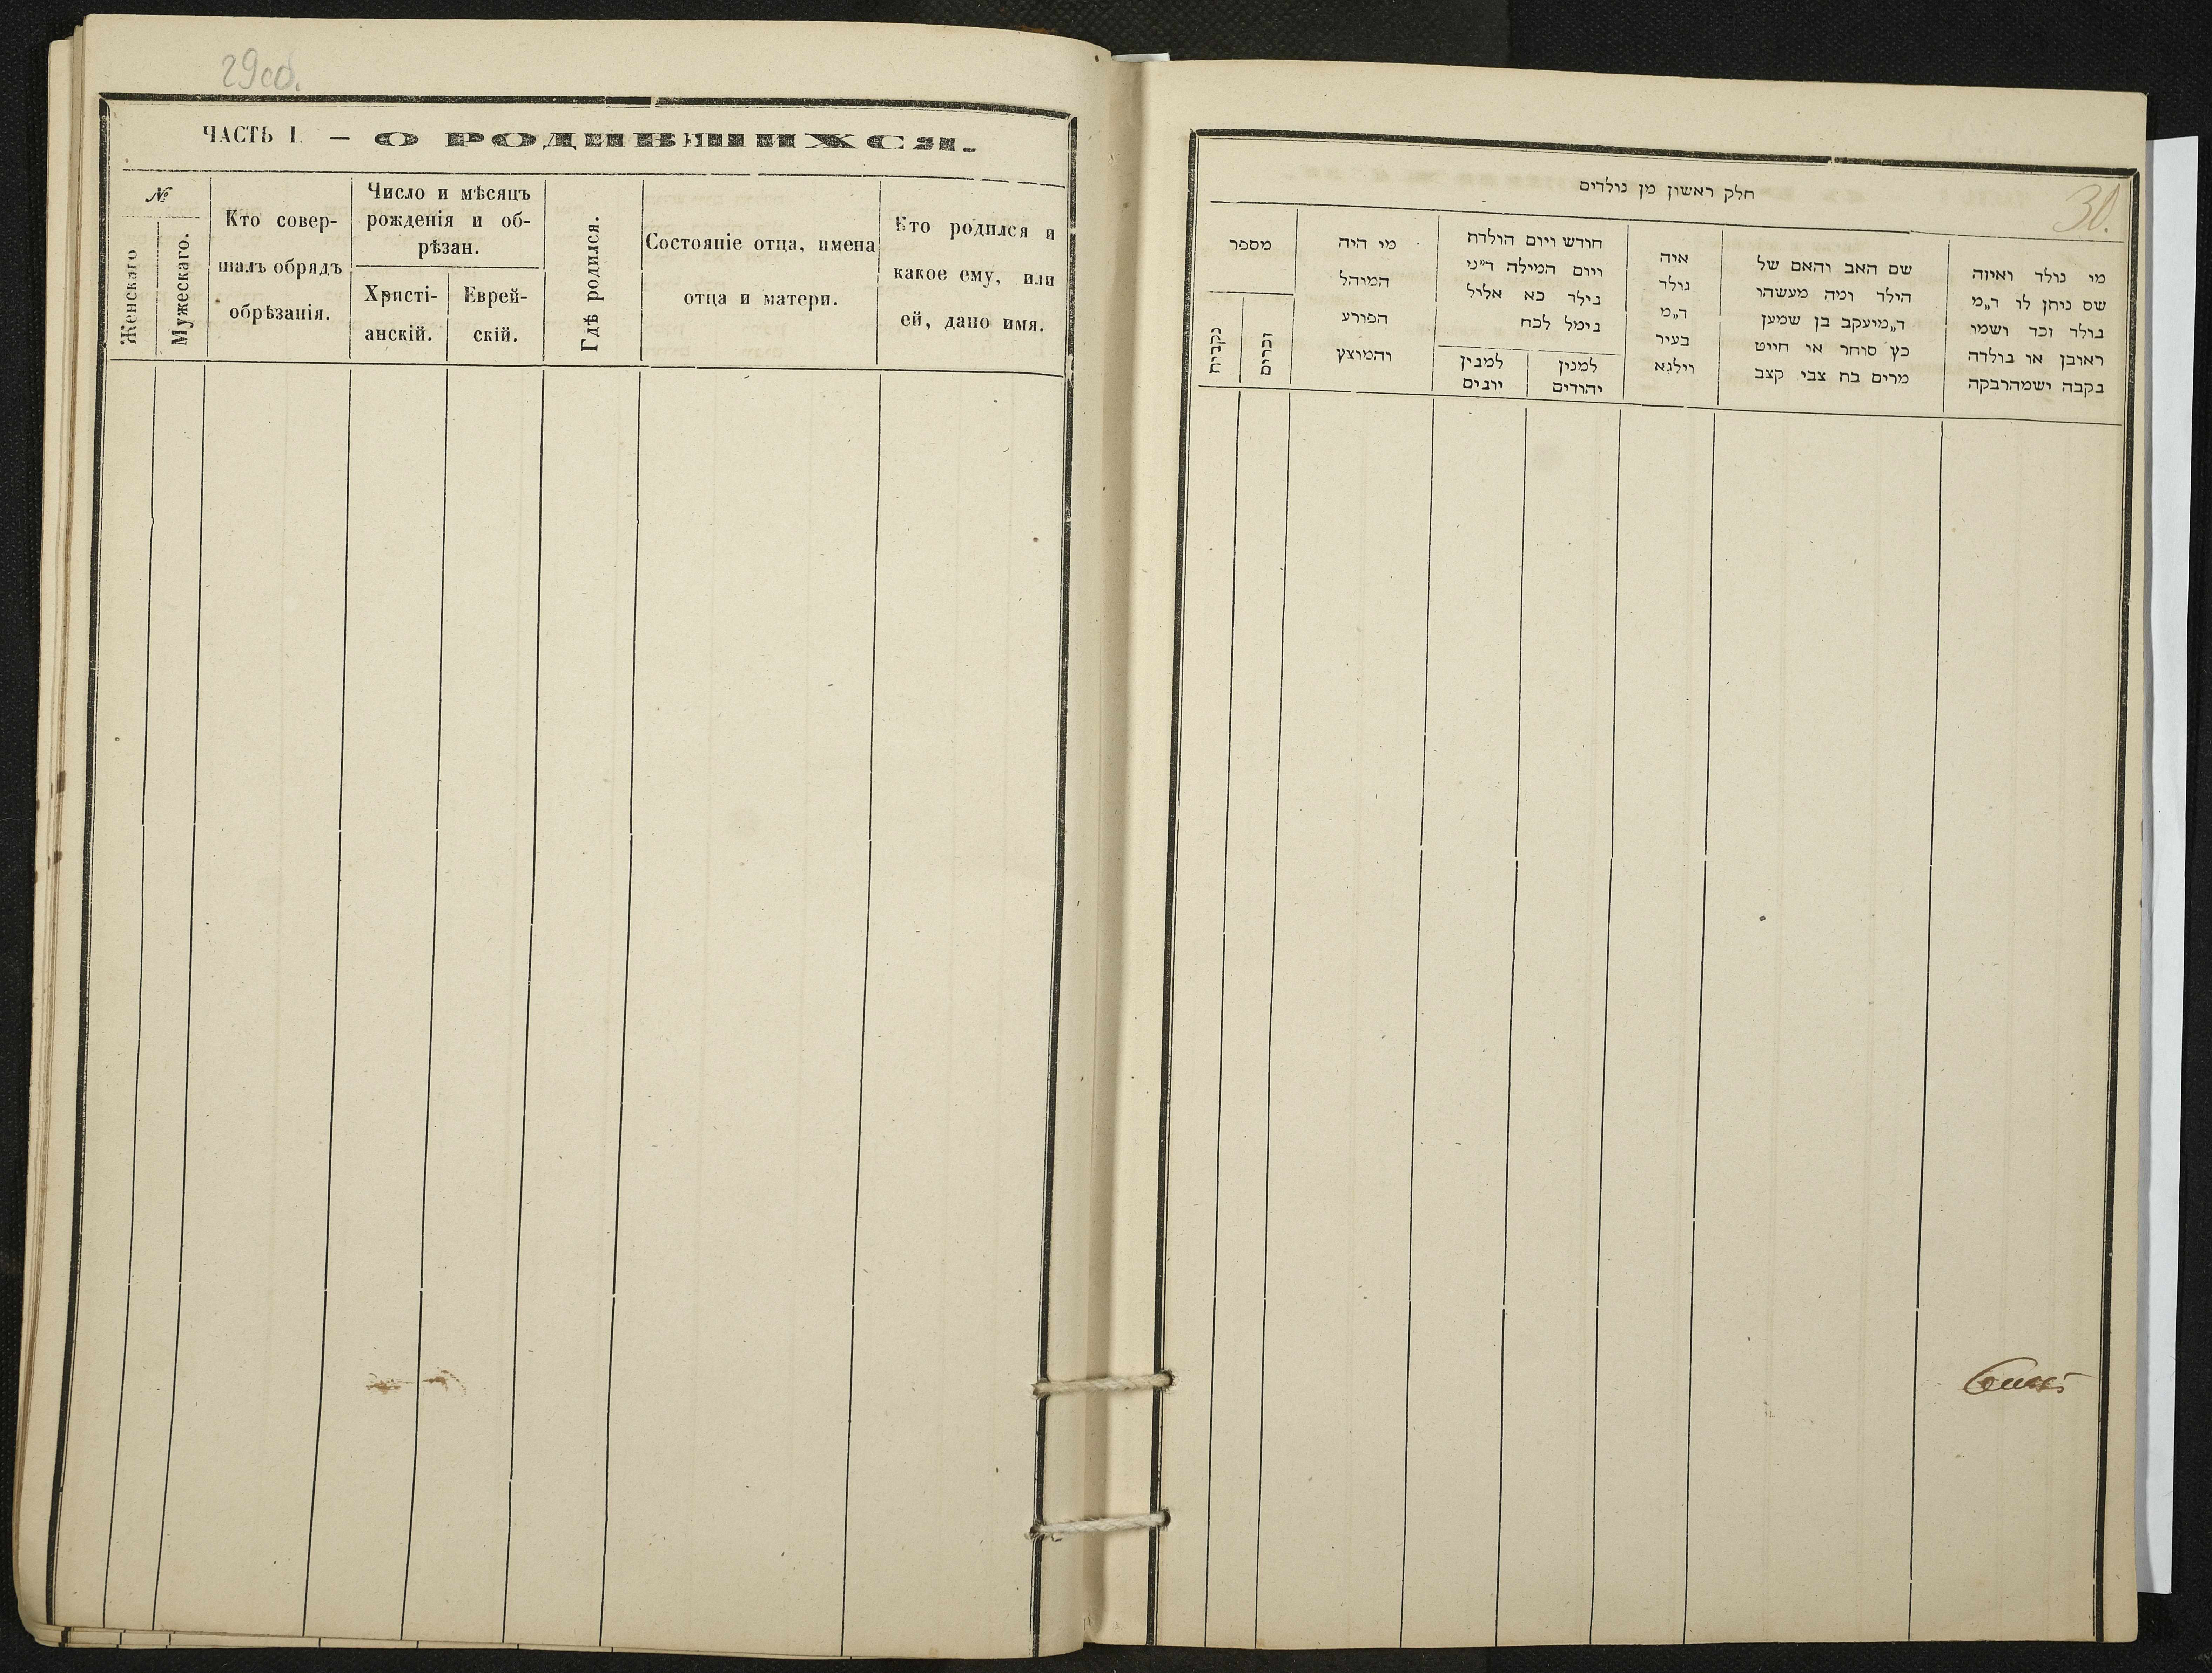 29об.
ЧАСТЬ I. — О РОДИВШИХСЯ.
№
Женскаго
Мужескаго.
Кто совер-
шалъ обрядъ
обрѣзанія.
Число и мѣсяцъ
рожденія и об-
рѣзан.
Христі-
анскій.
Еврей-
скій.
Гдѣ родился.
Состояніе отца, имена
отца и матери.
Кто родился и
какое ему, или
ей, дано имя.
30.
חלק ראשון מן נולדים
מי נולד ואיזה
שם ניתן לו ד„מ
נולד זכר ושמו
ראובן או נולדה
נקבה ושמהרבקה
שם האב והאם של
הילד ומה מעשהו
ד„מיעקב בן שמען
כץ סוחר או חייט
מרים בת צבי קצב
איה
נולד
ד„מ
בעיר
וילנא
חודש ויום הולדת
ויום המילה ד״ני
נילד כא אליל
נימל לכח
למנין
יהודים
למנין
יונים
מי היה
המוהל
הפורע
והמוצץ
מספר
זכרים
נקבות